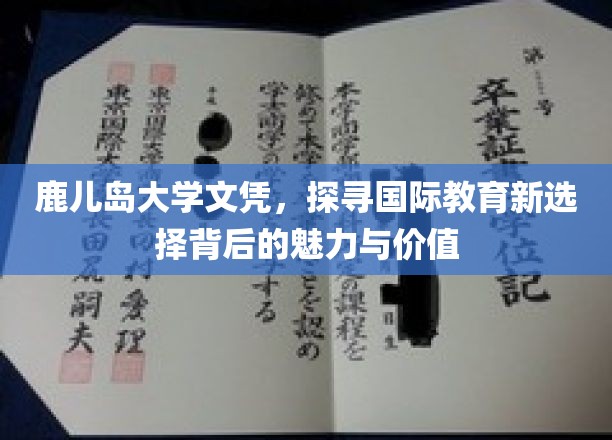 鹿儿岛大学文凭，探寻国际教育新选
择背后的魅力与价值
第 号
卒業証 位記
本学商学部 定の課程を
修めて本学 とを認め
学士(商学)の する
平成
日生
東京国際大 村 愛理
東京国際大 長 田尻嗣夫